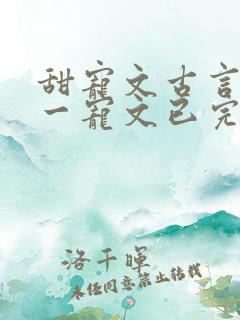 甜寵文古言
一寵文已完
洛千暉
未经同意禁止转载